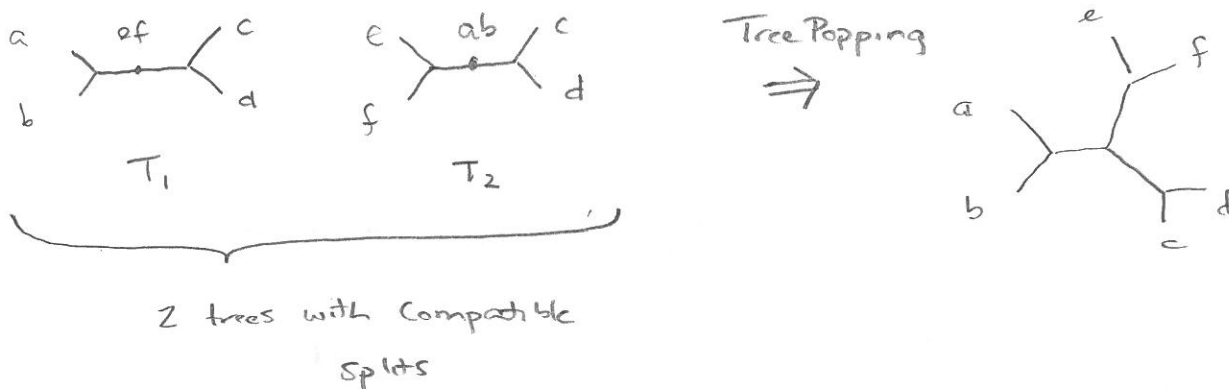 a ef c
b d
T1
e ab c
f d
T2
Tree Popping
⇒
e
f
a
b
c
d
2 trees with Compatible
splits